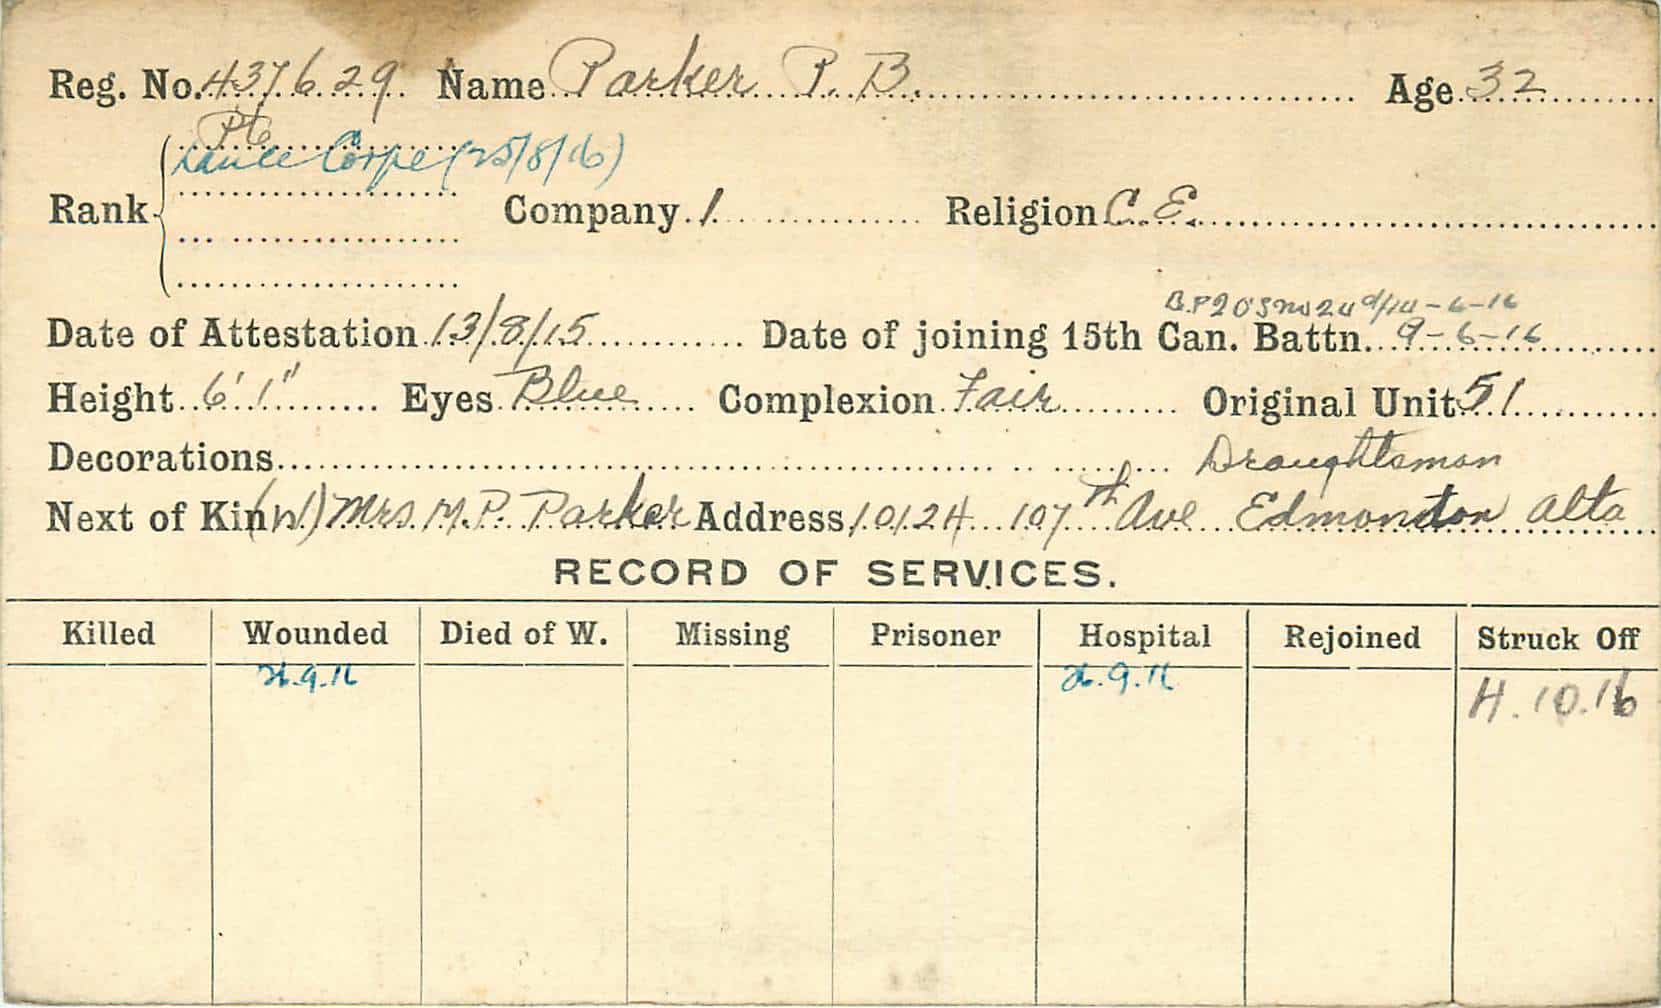 Reg. No. 437629 Name Parker P. B. Age 32
Pte
Lance Corpl (25/8/16)
Rank Company 1 Religion C. E.
14-6-16
Date of Attestation 13/8/15 Date of joining 15th Can. Battn. 9-6-16
Height 6' 1" Eyes Blue Complexion Fair Original Unit 51
Decorations Draughtsman
Next of Kin (W) Mrs. M. P. Parker Address 10124 107th Ave Edmonton Alta
RECORD OF SERVICES.
Killed Wounded Died of W. Missing Prisoner Hospital Rejoined Struck Off
26.9.16 26.9.16
4.10.16